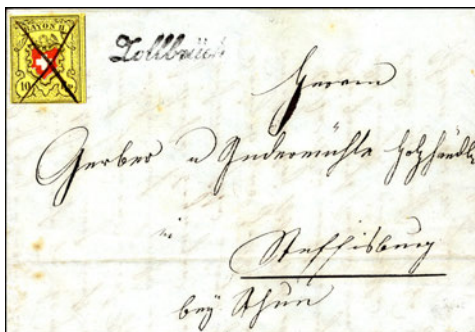 RAYON II
10
Zollbrück
Herren
Gerber u Indermühle Holzhändler
in
Steffisburg
bey Thun